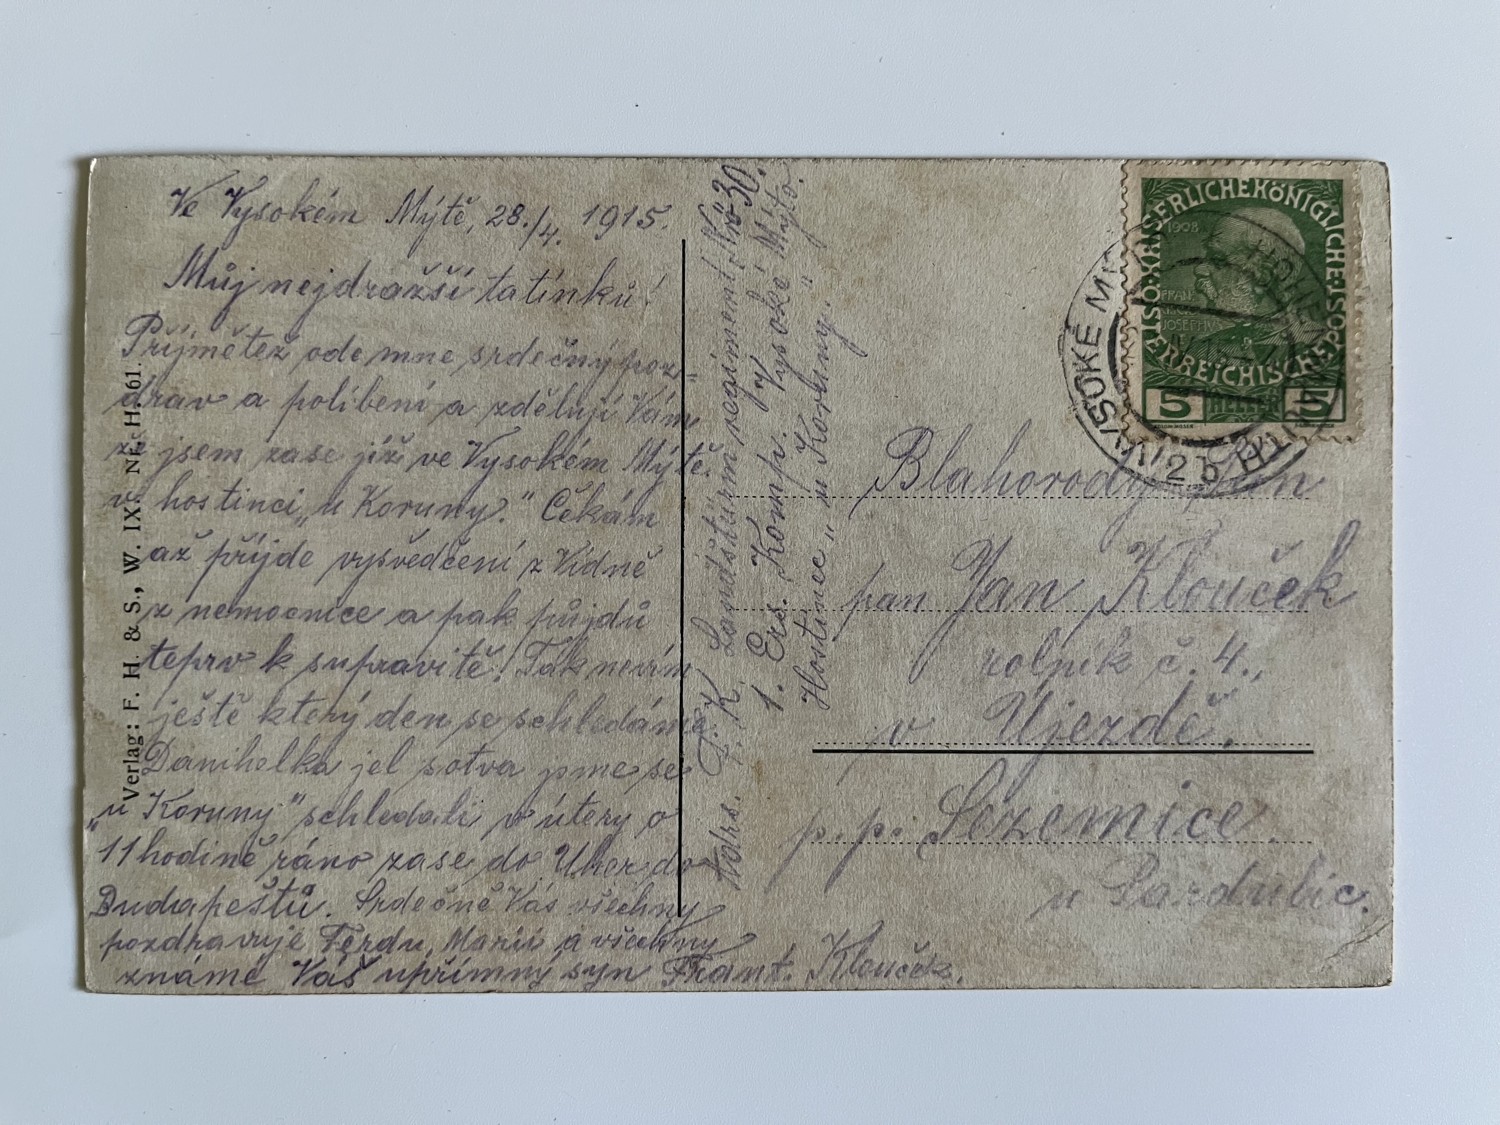 Ve Vysokém Mýtě, 28./4. 1915.
Můj nejdražší tatínku!
Přijmětež ode mne srdečný poz=
drav a políbení a zděluji Vám
že jsem zase již ve Vysokém Mýtě.
v hostinci „u Koruny." Čekám
až přijde vysvědčení z Vídně
z nemocnice a pak půjdu
teprv k supravitě! Tak nevím
ještě který den se schledáme
Danihelka jel sotva jsme se
„u Koruny" schledali v úterý o
11 hodině ráno zase do Uher do
Budapeště. Srdečně Vás všechny
pozdravuje Ferdu, Marii a všechny
známé Váš upřímný syn Frant. Klouček.
K. Landšturm regiment No 30.
1. Ers. Komp. Vysoké Mýto.
Hostinec „u Koruny."
Verlag: F. H. & S., W. IX. Nr. H 61.
ÖSTERREICHISCHE POST KAISERLICHE KÖNIGLICHE
1908
FRANZ JOSEPH
5 HELLER 5
VYSOKÉ MÝ
HOHENMAUTH
Blahorodý Pán
pan Jan Klouček
rolník č. 4.,
v Újezdě.
p. p. Sezemice
u Pardubic.